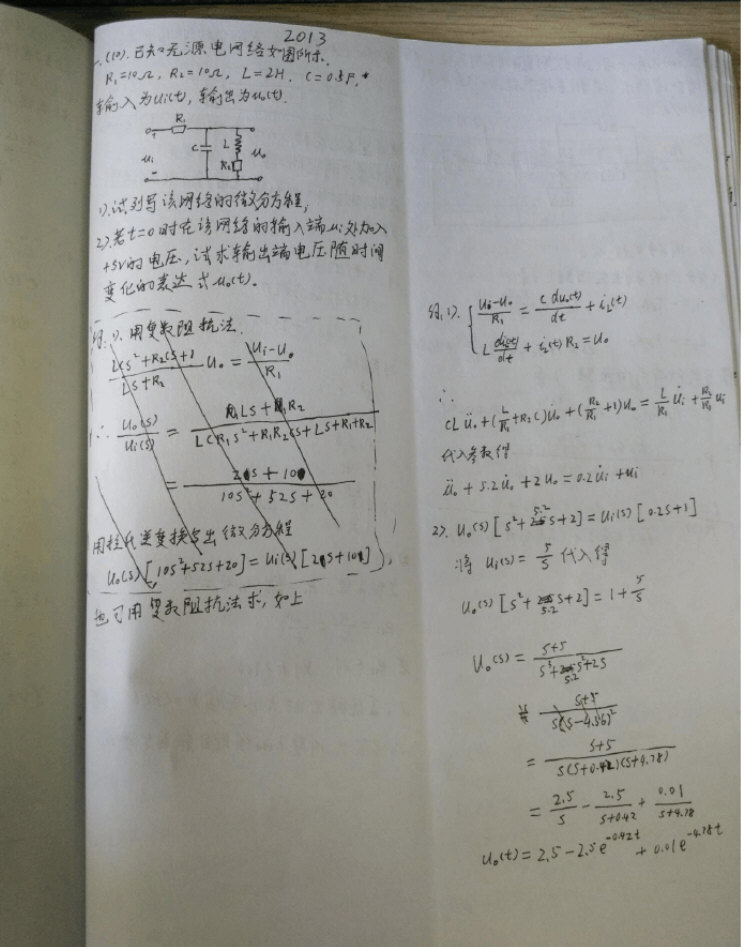 2013
一.(10).已知无源电网络如图所示.
R₁=10Ω, R₂=10Ω, L=2H, C=0.5F,
输入为ui(t), 输出为uo(t).
R₁
+
ui
-
C
L
R₂
uo
1).试列写该网络的微分方程,
2).若t=0时在该网络的输入端ui处加入
+5V的电压, 试求输出端电压随时间
变化的表达式uo(t).
解:1).用复数阻抗法.
(LCs²+R₂Cs+1)/(Ls+R₂) Uo = (Ui-Uo)/R₁
∴ Uo(s)/Ui(s) = (Ls+R₂)/(LCR₁s²+R₁R₂Cs+Ls+R₁+R₂)
= (2s+10)/(10s²+52s+20)
用拉氏逆变换写出微分方程
Uo(s)[10s²+52s+20]=Ui(s)[2s+10]
也可用复数阻抗法求, 如上
解,1). { (ui-uo)/R₁ = C duo(t)/dt + iL(t)
L diL(t)/dt + iL(t)R₂ = uo
∴
CLüo+(L/R₁+R₂C)u̇o+(R₂/R₁+1)uo = L/R₁ u̇i + R₂/R₁ ui
代入参数得
üo+5.2u̇o+2uo=0.2u̇i+ui
2). Uo(s)[s²+5.2s+2]=Ui(s)[0.2s+1]
将 Ui(s)= 5/s 代入得
Uo(s)[s²+5.2s+2]=1+5/s
Uo(s) = (s+5)/(s³+5.2s²+2s)
(s+5)/(s(s-4.56)²)
= (s+5)/(s(s+0.42)(s+4.78))
= 2.5/s - 2.5/(s+0.42) + 0.01/(s+4.78)
uo(t)=2.5-2.5e^(-0.42t)+0.01e^(-4.78t)